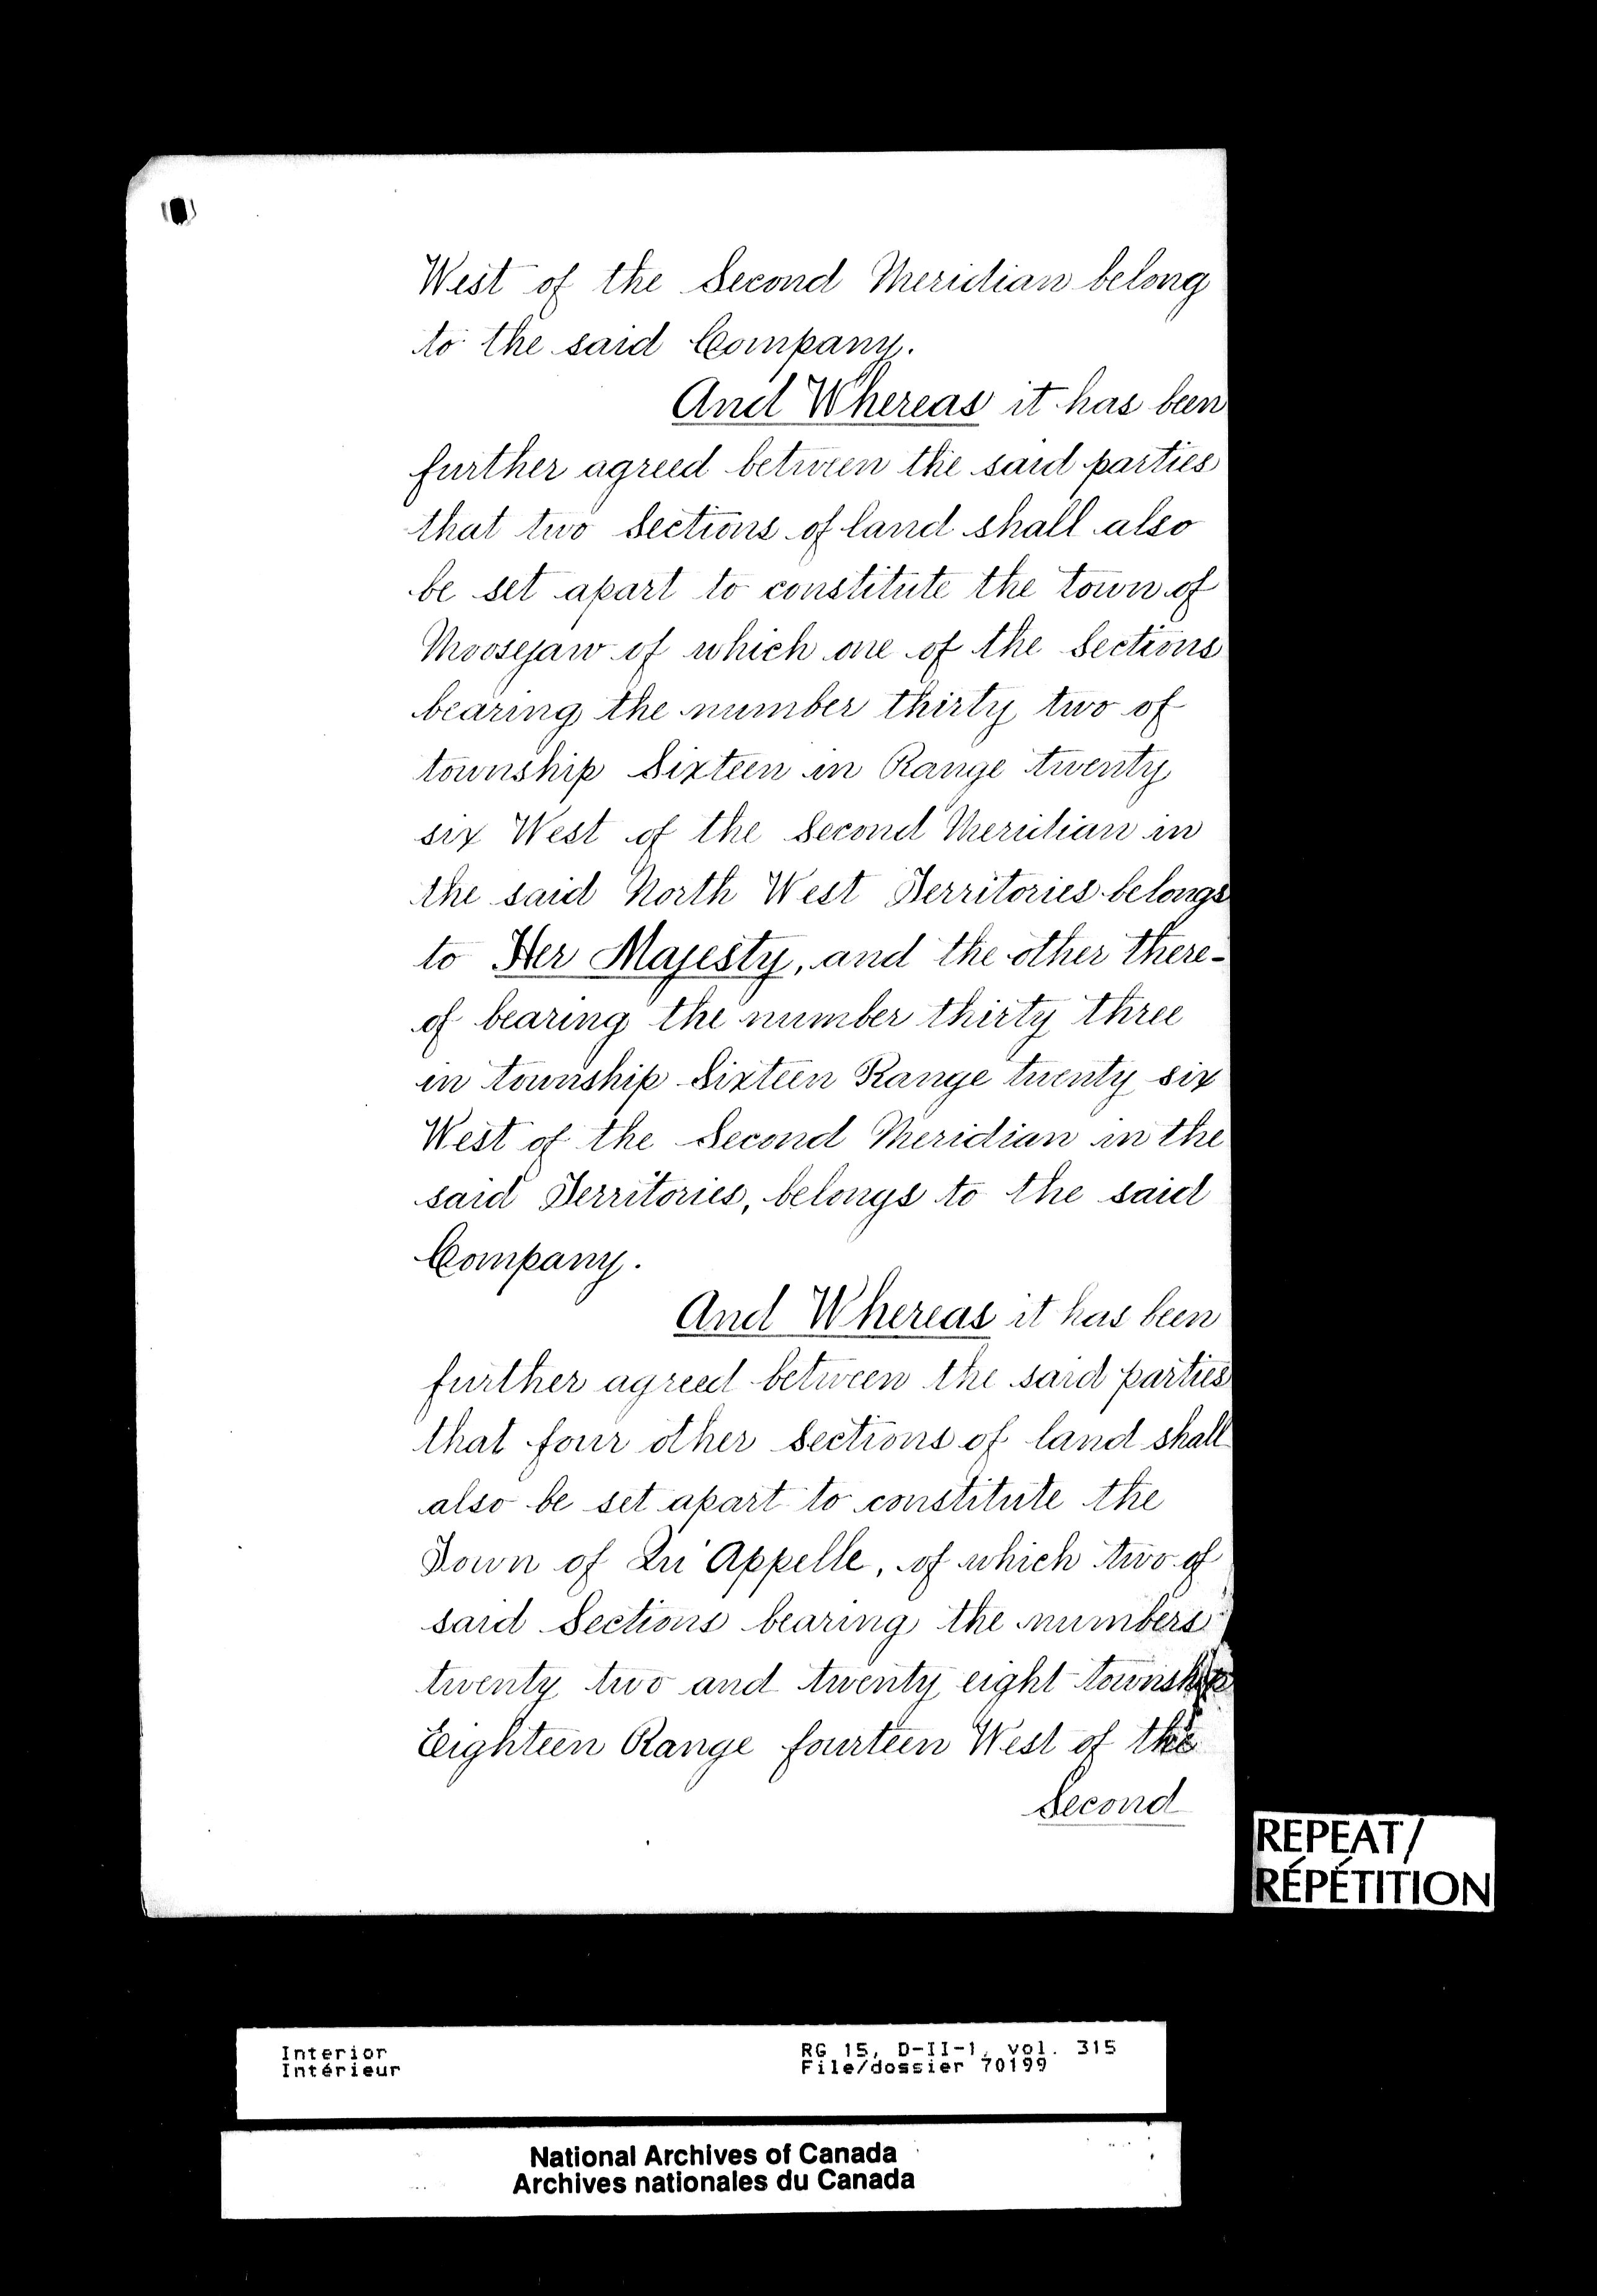 West of the Second Meridian belong
to the said Company.
And Whereas it has been
further agreed between the said parties
that two Sections of land shall also
be set apart to constitute the town of
Moosejaw of which one of the Sections
bearing the number thirty two of
township Sixteen in Range twenty
six West of the Second Meridian in
the said North West Territories belongs
to Her Majesty, and the other there-
of bearing the number thirty three
in township Sixteen Range twenty six
West of the Second Meridian in the
said Territories, belongs to the said
Company.
And Whereas it has been
further agreed between the said parties
that four other Sections of land shall
also be set apart to constitute the
Town of Qu'Appelle, of which two of
said Sections bearing the numbers
twenty two and twenty eight township
Eighteen Range fourteen West of the
Second
REPEAT/
RÉPÉTITION
Interior
Intérieur
RG 15, D-II-1, vol. 315
File/dossier 70199
National Archives of Canada
Archives nationales du Canada